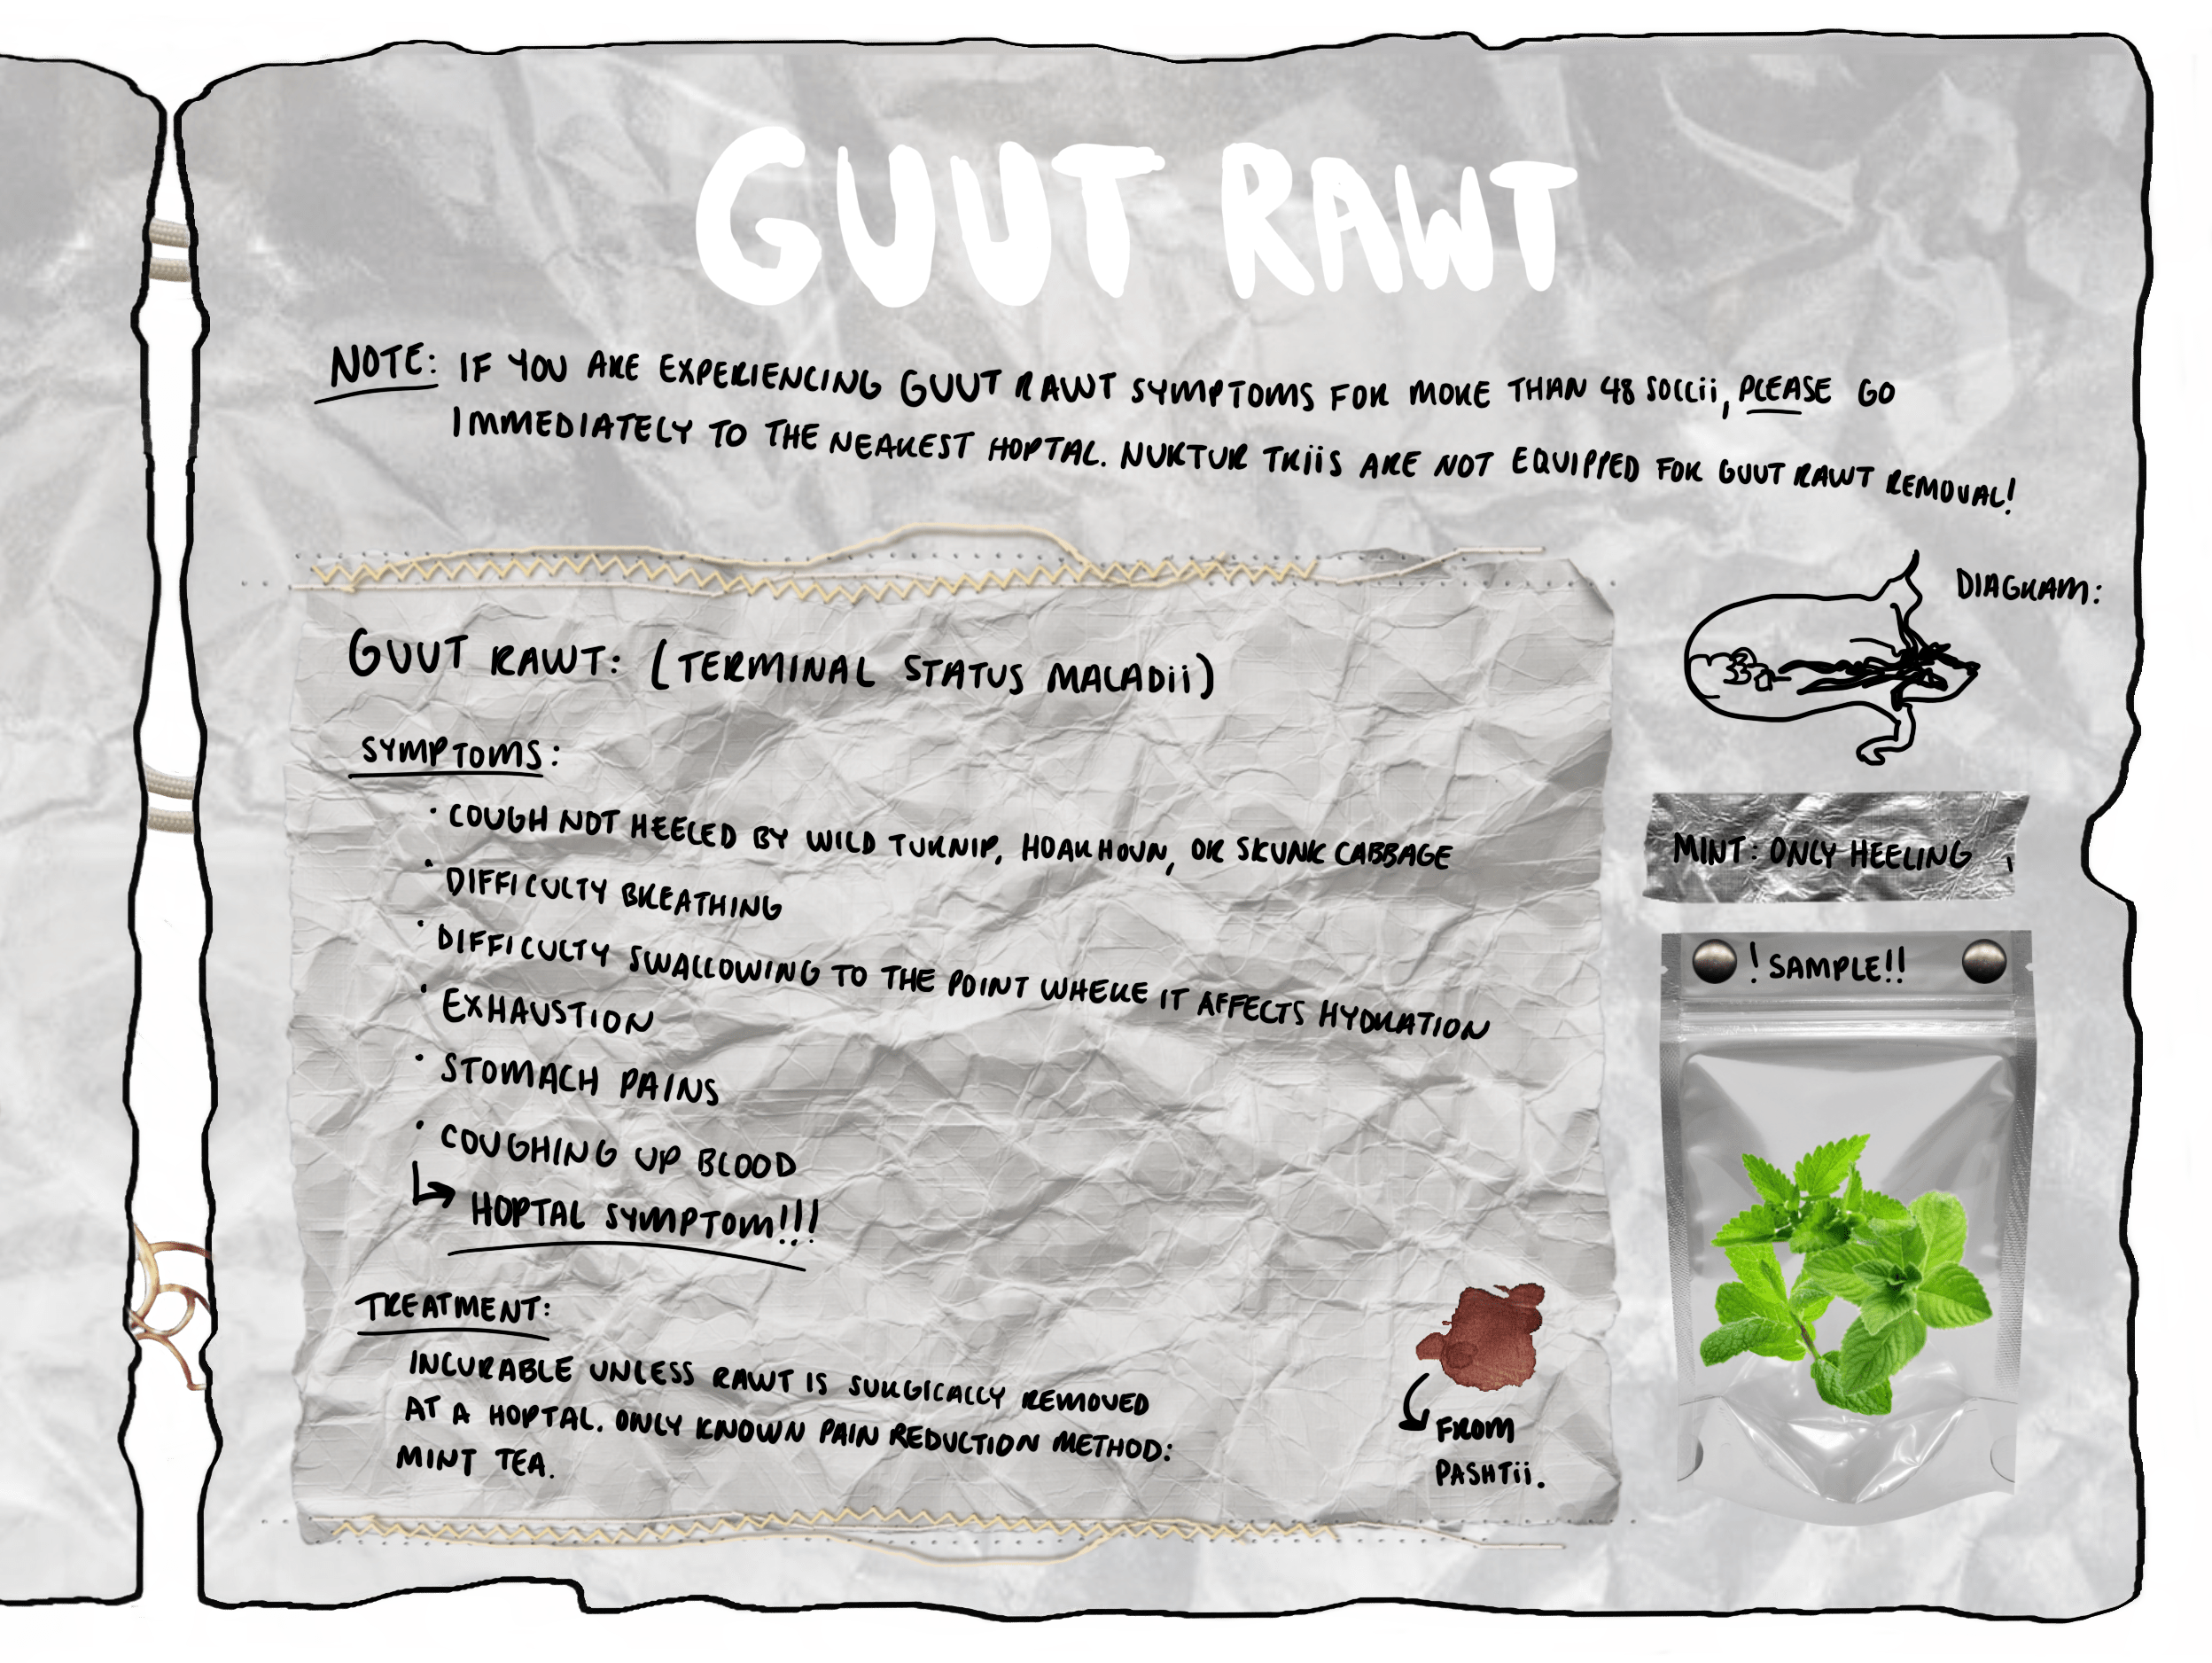 GUUT RAWT
NOTE: IF YOU ARE EXPERIENCING GUUT RAWT SYMPTOMS FOR MORE THAN 48 SOCCii, PLEASE GO
IMMEDIATELY TO THE NEAREST HOPTAL. NURTUR TRiiS ARE NOT EQUIPPED FOR GUUT RAWT REMOVAL!
DIAGRAM:
GUUT RAWT: (TERMINAL STATUS MALADii)
SYMPTOMS:
· COUGH NOT HEELED BY WILD TURNIP, HOARHOUN, OR SKUNK CABBAGE
· DIFFICULTY BREATHING
· DIFFICULTY SWALLOWING TO THE POINT WHERE IT AFFECTS HYDRATION
· EXHAUSTION
· STOMACH PAINS
· COUGHING UP BLOOD
HOPTAL SYMPTOM!!!
TREATMENT:
INCURABLE UNLESS RAWT IS SURGICALLY REMOVED
AT A HOPTAL. ONLY KNOWN PAIN REDUCTION METHOD:
MINT TEA.
FROM
PASHTii.
MINT: ONLY HEELING
! SAMPLE!!